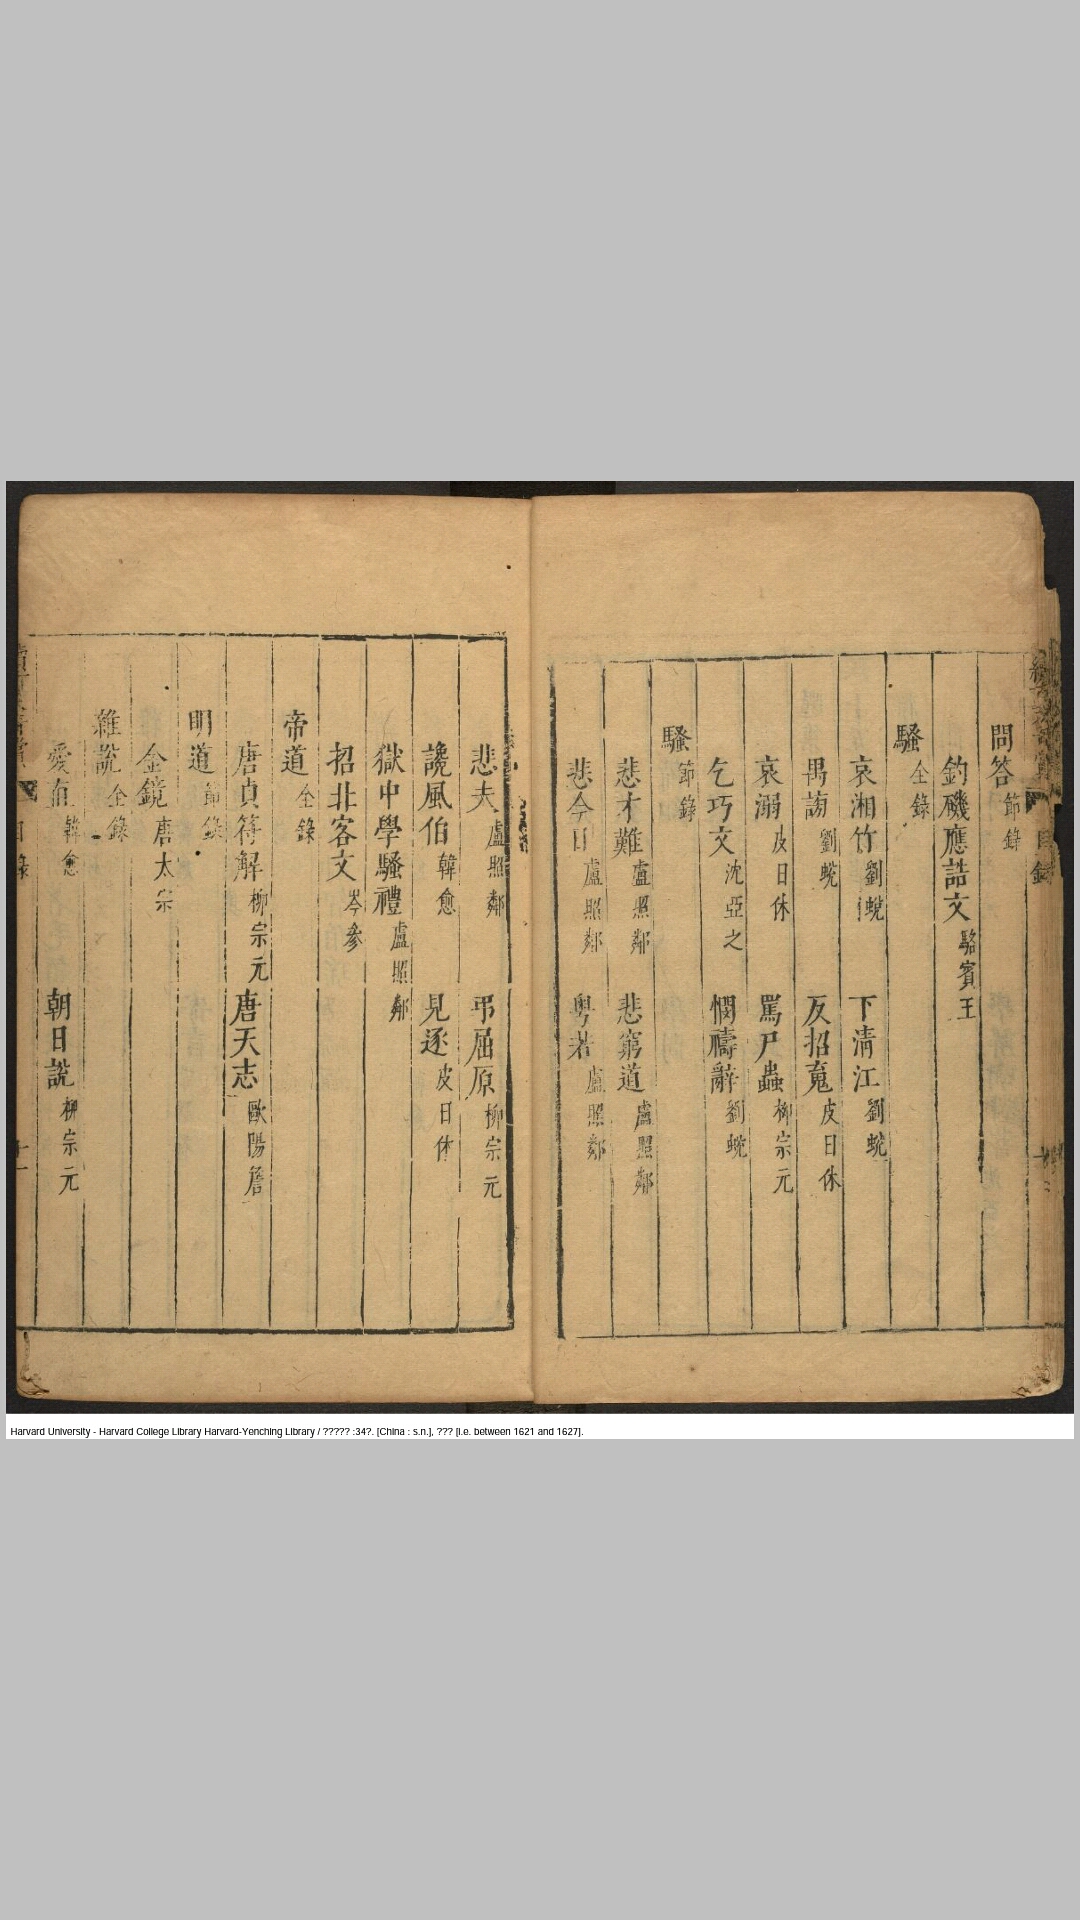 問答節錄
釣磯應詰文駱賓王
騷全錄
哀湘竹劉蛻 下清江劉蛻
禺諵劉蛻 反招䰟皮日休
哀溺皮日休 罵尸蟲柳宗元
乞巧文沈亞之 憫禱辭劉蛻
騷節錄
悲才難盧照鄰 悲窮道盧照鄰
悲今日盧照鄰 粵若盧照鄰
悲夫盧照鄰 弔屈原柳宗元
讒風伯韓愈 見逐皮日休
獄中學騷禮盧照鄰
招北客文岑參
帝道全錄
唐貞符解柳宗元 唐天志歐陽詹
明道節錄
金鏡唐太宗
雜說全錄
愛直韓愈 朝日說柳宗元
目錄
Harvard University - Harvard College Library Harvard-Yenching Library / ????? :34?. [China : s.n.], ??? [i.e. between 1621 and 1627].